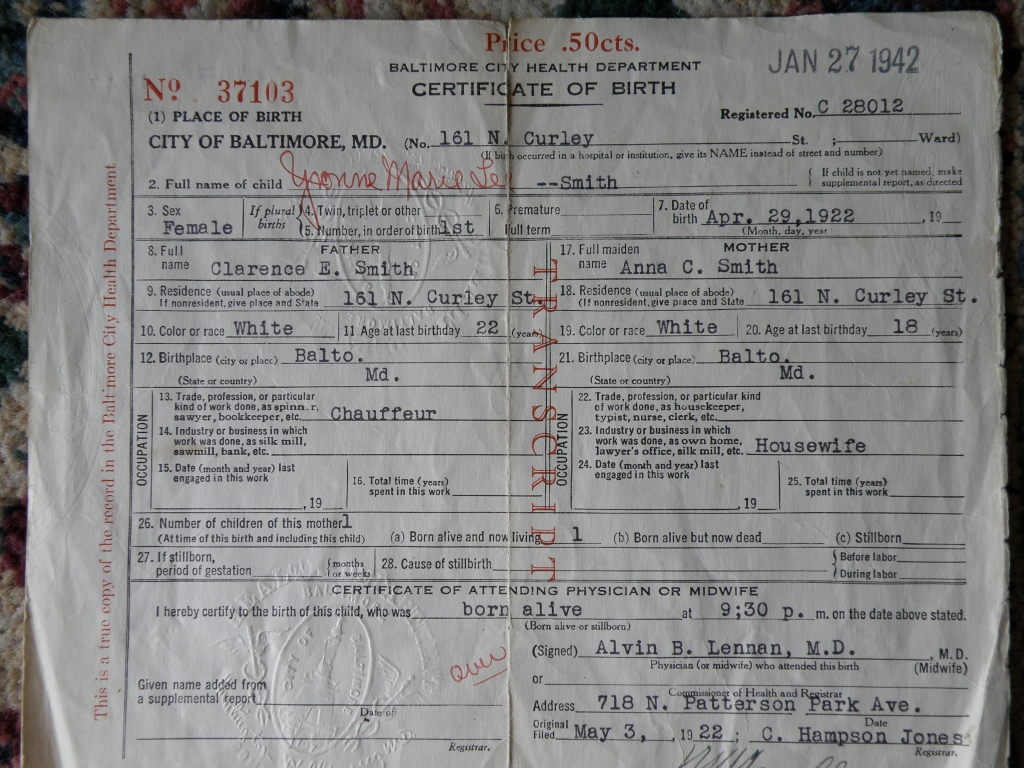 Price .50cts.
BALTIMORE CITY HEALTH DEPARTMENT
JAN 27 1942
Nº 37103
CERTIFICATE OF BIRTH
Registered No. C 28012
(1) PLACE OF BIRTH
CITY OF BALTIMORE, MD. (No. 161 N. Curley St. ; Ward)
(If birth occurred in a hospital or institution, give its NAME instead of street and number)
2. Full name of child Yvonne Marie Lee --Smith { If child is not yet named, make supplemental report, as directed
3. Sex Female
If plural births
4. Twin, triplet or other
5. Number, in order of birth 1st
6. Premature
Full term
7. Date of birth Apr. 29,1922 , 19
(Month, day, year
FATHER
8. Full name Clarence E. Smith
9. Residence (usual place of abode)
If nonresident, give place and State 161 N. Curley St.
10. Color or race White 11 Age at last birthday 22 (years)
12. Birthplace (city or place) Balto.
(State or country) Md.
OCCUPATION
13. Trade, profession, or particular
kind of work done, as spinner,
sawyer, bookkeeper, etc. Chauffeur
14. Industry or business in which
work was done, as silk mill,
sawmill, bank, etc.
15. Date (month and year) last
engaged in this work
, 19
16. Total time (years)
spent in this work
MOTHER
17. Full maiden name Anna C. Smith
18. Residence (usual place of abode)
(If nonresident, give place and State 161 N. Curley St.
19. Color or race White 20. Age at last birthday 18 (years)
21. Birthplace (city or place) Balto.
(State or country) Md.
OCCUPATION
22. Trade, profession, or particular kind
of work done, as housekeeper,
typist, nurse, clerk, etc.
23. Industry or business in which
work was done, as own home,
lawyer's office, silk mill, etc. Housewife
24. Date (month and year) last
engaged in this work
, 19
25. Total time (years)
spent in this work
TRANSCRIPT
26. Number of children of this mother 1
(At time of this birth and including this child) (a) Born alive and now living 1 (b) Born alive but now dead (c) Stillborn
27. If stillborn,
period of gestation { months or weeks 28. Cause of stillbirth { Before labor
During labor
CERTIFICATE OF ATTENDING PHYSICIAN OR MIDWIFE
I hereby certify to the birth of this child, who was born alive at 9;30 p. m. on the date above stated.
(Born alive or stillborn)
(Signed) Alvin B. Lennan, M.D. , M.D.
Physician (or midwife) who attended this birth (Midwife)
over
or
Given name added from
a supplemental report
Date of
Registrar.
Commissioner of Health and Registrar
Address 718 N. Patterson Park Ave.
Date
Original Filed May 3, , 19 22 ; C. Hampson Jones
Registrar.
This is a true copy of the record in the Baltimore City Health Department